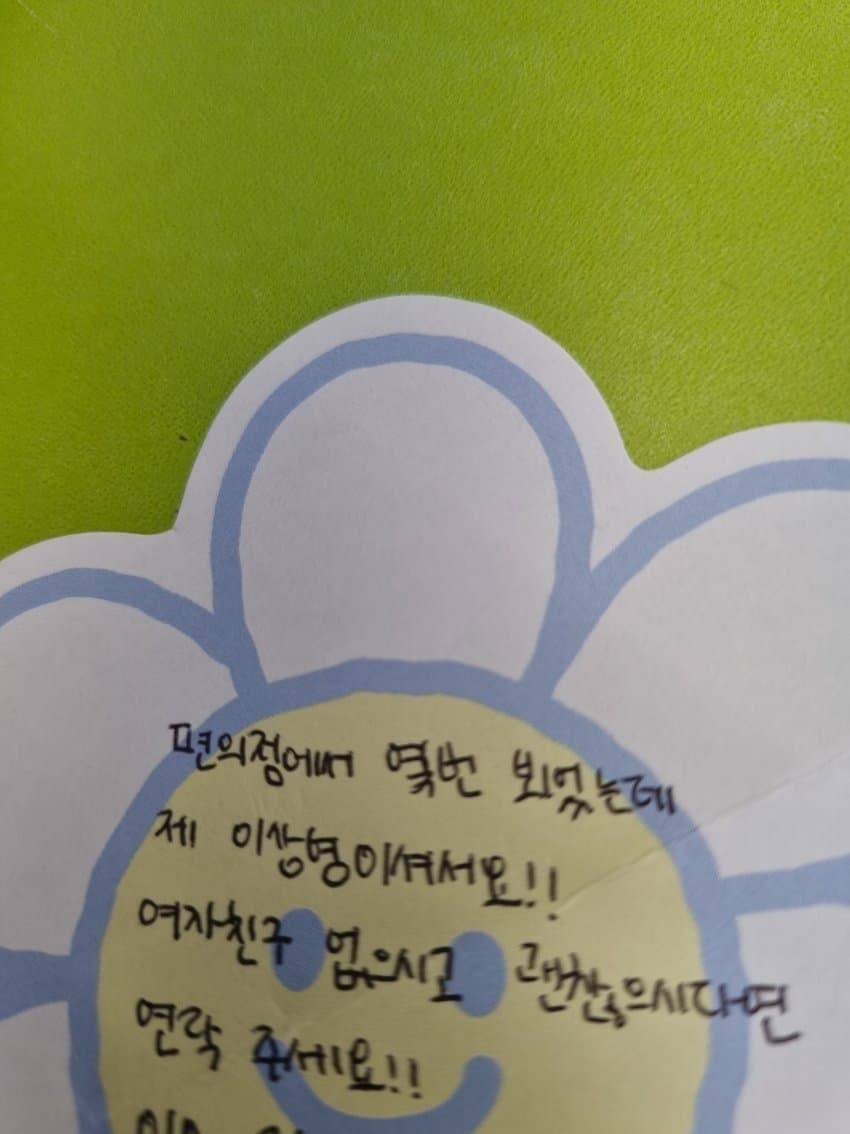 편의점에서 몇번 뵈었는데
제 이상형이셔서요!!
여자친구 없으시고 괜찮으시다면
연락 주세요!!